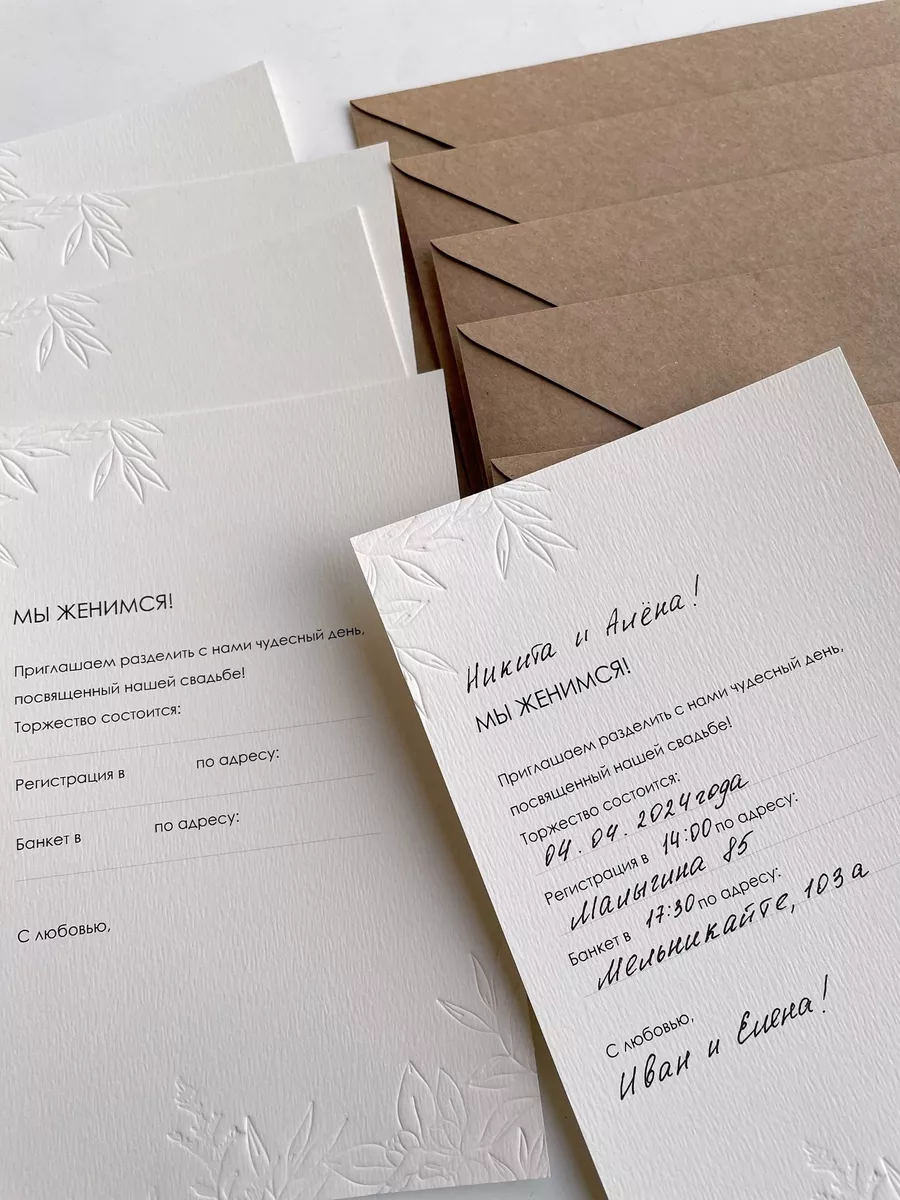 МЫ ЖЕНИМСЯ!
Приглашаем разделить с нами чудесный день,
посвященный нашей свадьбе!
Торжество состоится:
Регистрация в по адресу:
Банкет в по адресу:
С любовью,
Никита и Алёна!
МЫ ЖЕНИМСЯ!
Приглашаем разделить с нами чудесный день,
посвященный нашей свадьбе!
Торжество состоится:
04.04.2024 года
Регистрация в 14:00 по адресу:
Малыгина 85
Банкет в 17:30 по адресу:
Мельникайте, 103 а
С любовью,
Иван и Елена!